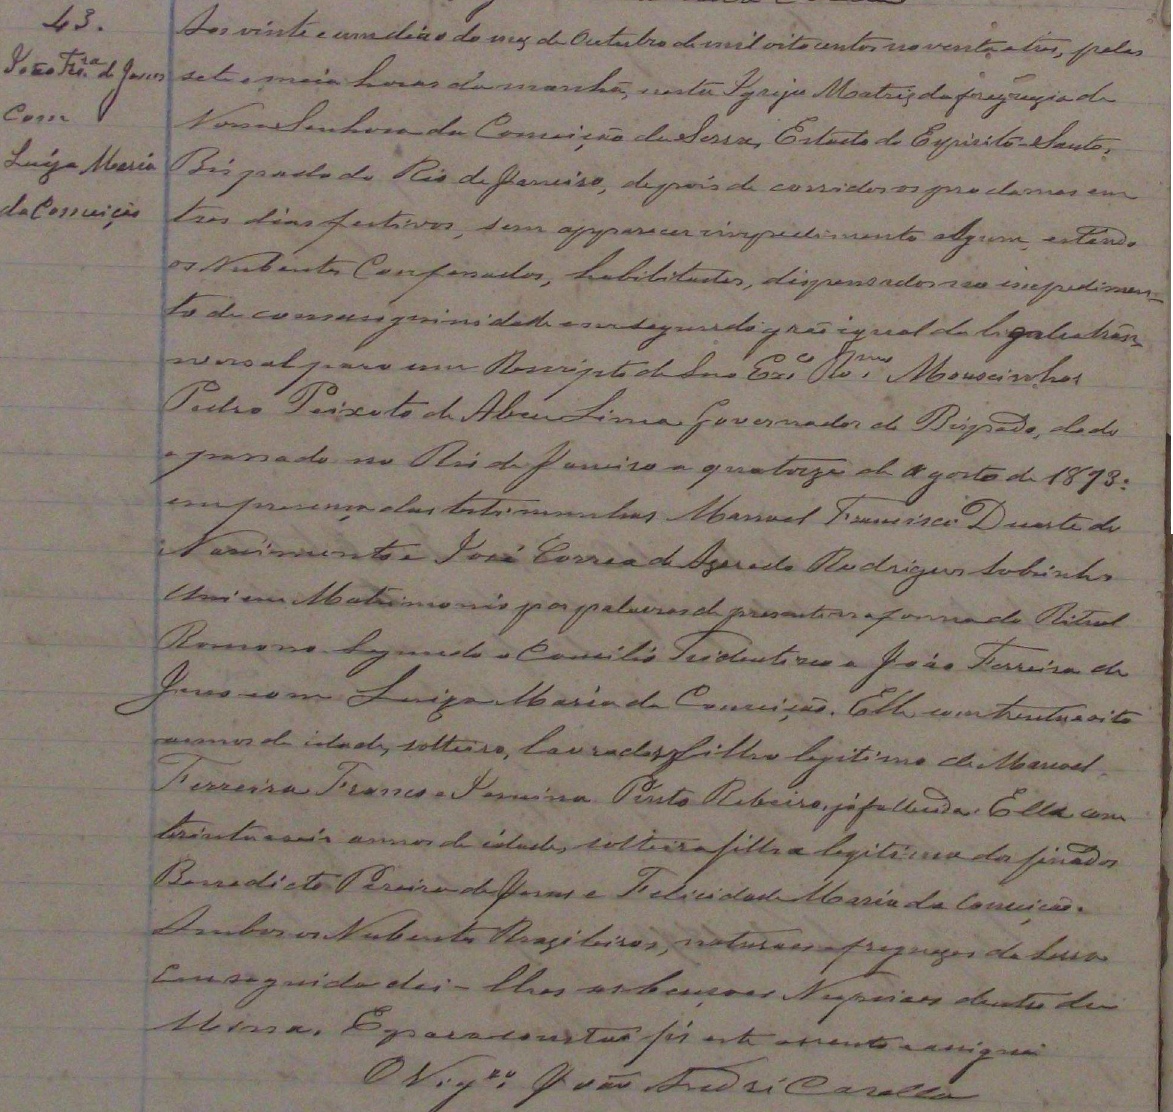 43.
João Frra de Jesus
Com
Luiza Maria
da Conceição
Aos vinte e um dias do mez de Outubro de mil oito centos noventa e tres, pelas
sete e meia horas da manhã, nesta Igreja Matriz da freguezia de
Nossa Senhora da Conceição da Serra, Estado do Espirito-Santo,
Bispado do Rio de Janeiro, depois de corridos os proclamas em
tres dias festivos, sem apparecer impedimento algum, estando
os Nubentes Confessados, habilitados, dispensados no impedimen-
to de consanguinidade em segundo gráo igual da linha trans-
versal para um Rescripto de Sua Exca Rvma Monsenhor
Pedro Peixoto de Abreu Lima Governador do Bispado, dado
e passado no Rio de Janeiro a quatorze de Agosto de 1893:
em presença das testimunhas Manoel Francisco Duarte do
Nascimento e José Correa de Azeredo Rodrigues Sobinho
Uni em Matrimonio por palavras de presente na forma do Ritual
Romano Segundo o Concilio Tridentino a João Ferreira de
Jesus com Luiza Maria da Conceição. Elle com trinta e oito
annos de idade, solteiro, lavrador, filho legitimo de Manoel
Ferreira Franco e Pinto Ribeiro, já fallecida. Ella com
trinta e seis annos de idade, solteira filha legitima dos finados
Benedicto Pereira de Jesus e Felicidade Maria da Conceição.
Ambos os Nubentes Brazileiros, naturaes e freguezes da Serra
Em seguida dei-lhes as bençoes Nupciaes dentro da
Missa. E para constar fiz este assento e assignei
O Vigro João André Casella